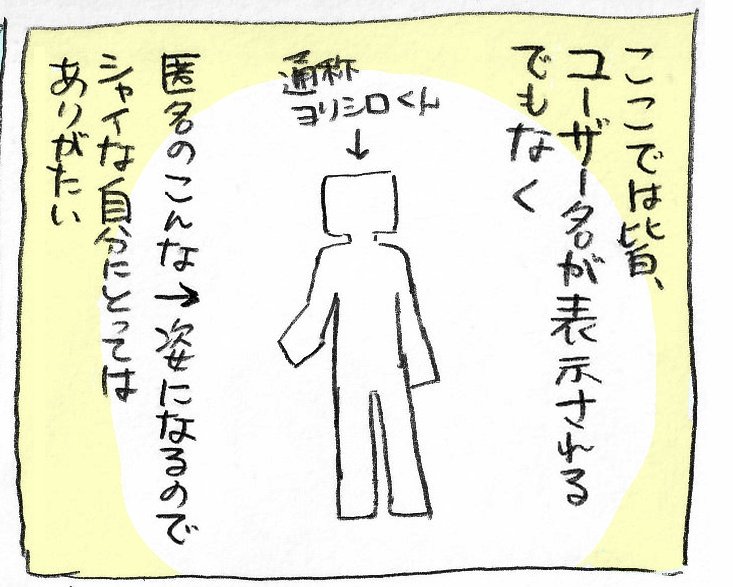 ここでは皆、
ユーザー名が表示される
でもなく
通称
ヨリシロくん
匿名のこんな→姿になるので
シャイな自分にとっては
ありがたい